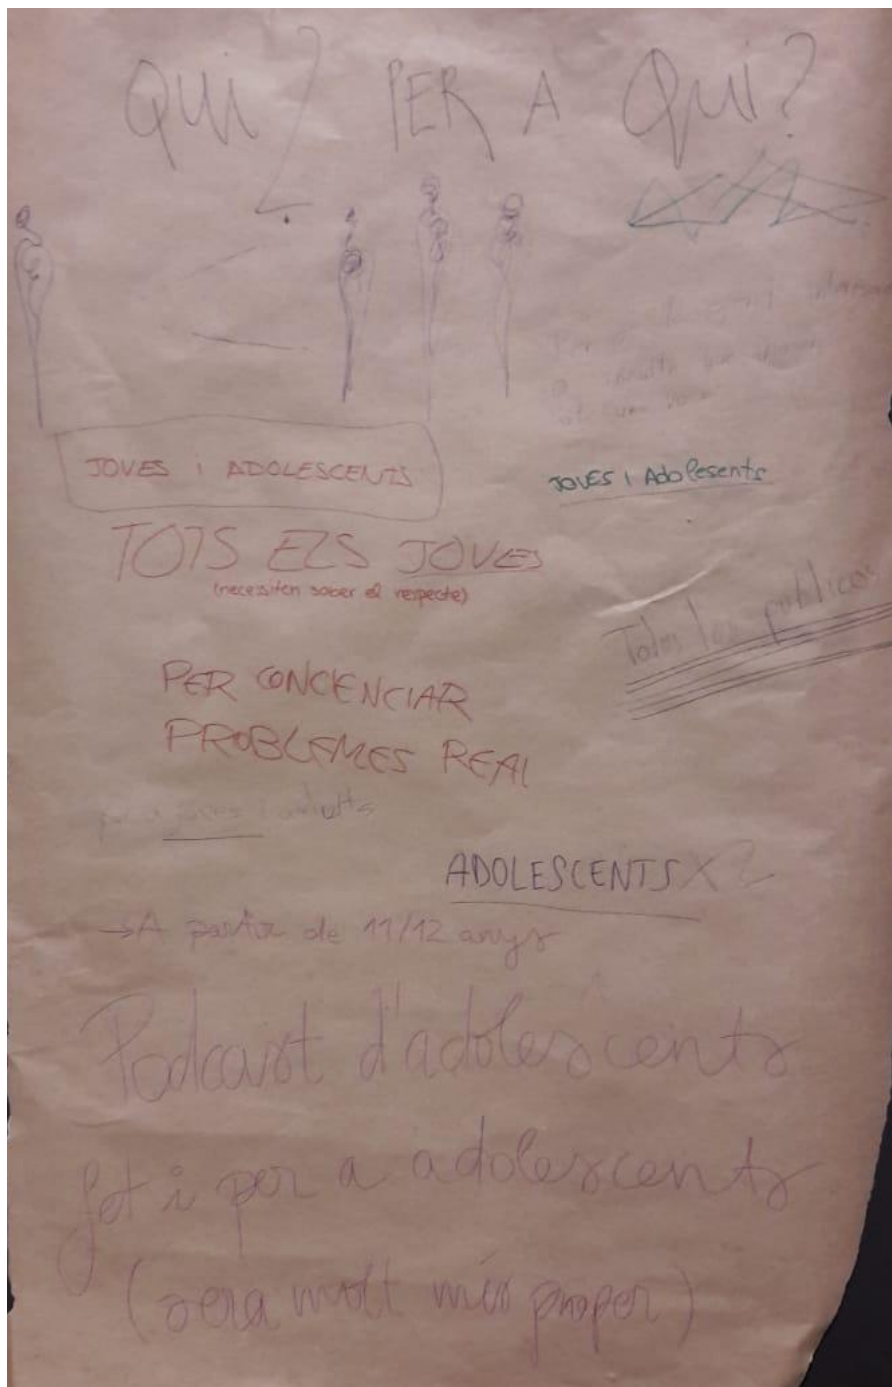 Qui? PER A Qui?
JOVES i ADOLESCENTS
JOVES i Adolesents
TOTS ELS JOVES
(necessiten saber el respecte)
Todos los publicos
PER CONCIENCIAR
PROBLEMES REAL
per a joves i adults
ADOLESCENTS X2
→A partir de 11/12 anys
Podcast d'adolescents
fet i per a adolescents
(sera molt més proper)